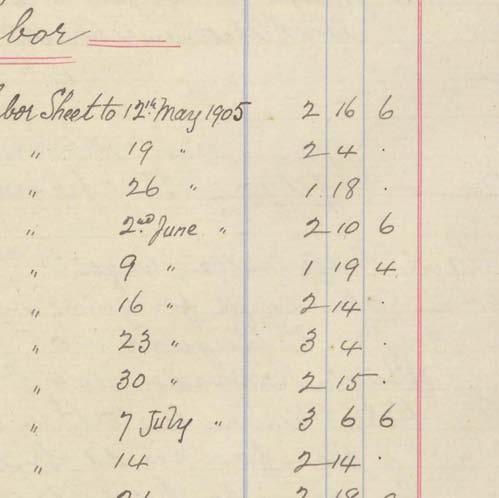 bor
bor Sheet to 12th May 1905 2 16 6
" 19 " 2 4 .
" 26 " 1 18 .
" 2nd June " 2 10 6
" 9 " 1 19 4
" 16 " 2 14 .
" 23 " 3 4 .
" 30 " 2 15 .
" 7 July " 3 6 6
" 14 2 14 .